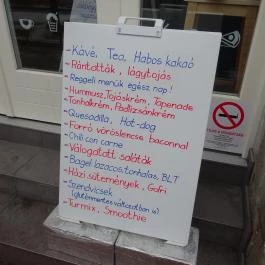 - Kávé, Tea, Habos kakaó
- Rántották, lágytojás
Reggeli menük egész nap!
- Hummusz, Tojáskrém, Tapenade
Tonhalkrém, Padlizsánkrém
- Quesadilla, Hot-dog
- Forró vöröslencse baconnal
- Chili con carne
- Válogatott saláták
- Bagel lazacos, tonhalas, BLT
- Házi sütemények, Gofri
- Szendvicsek
(gluténmentes változatban is)
- Turmix, Smoothie